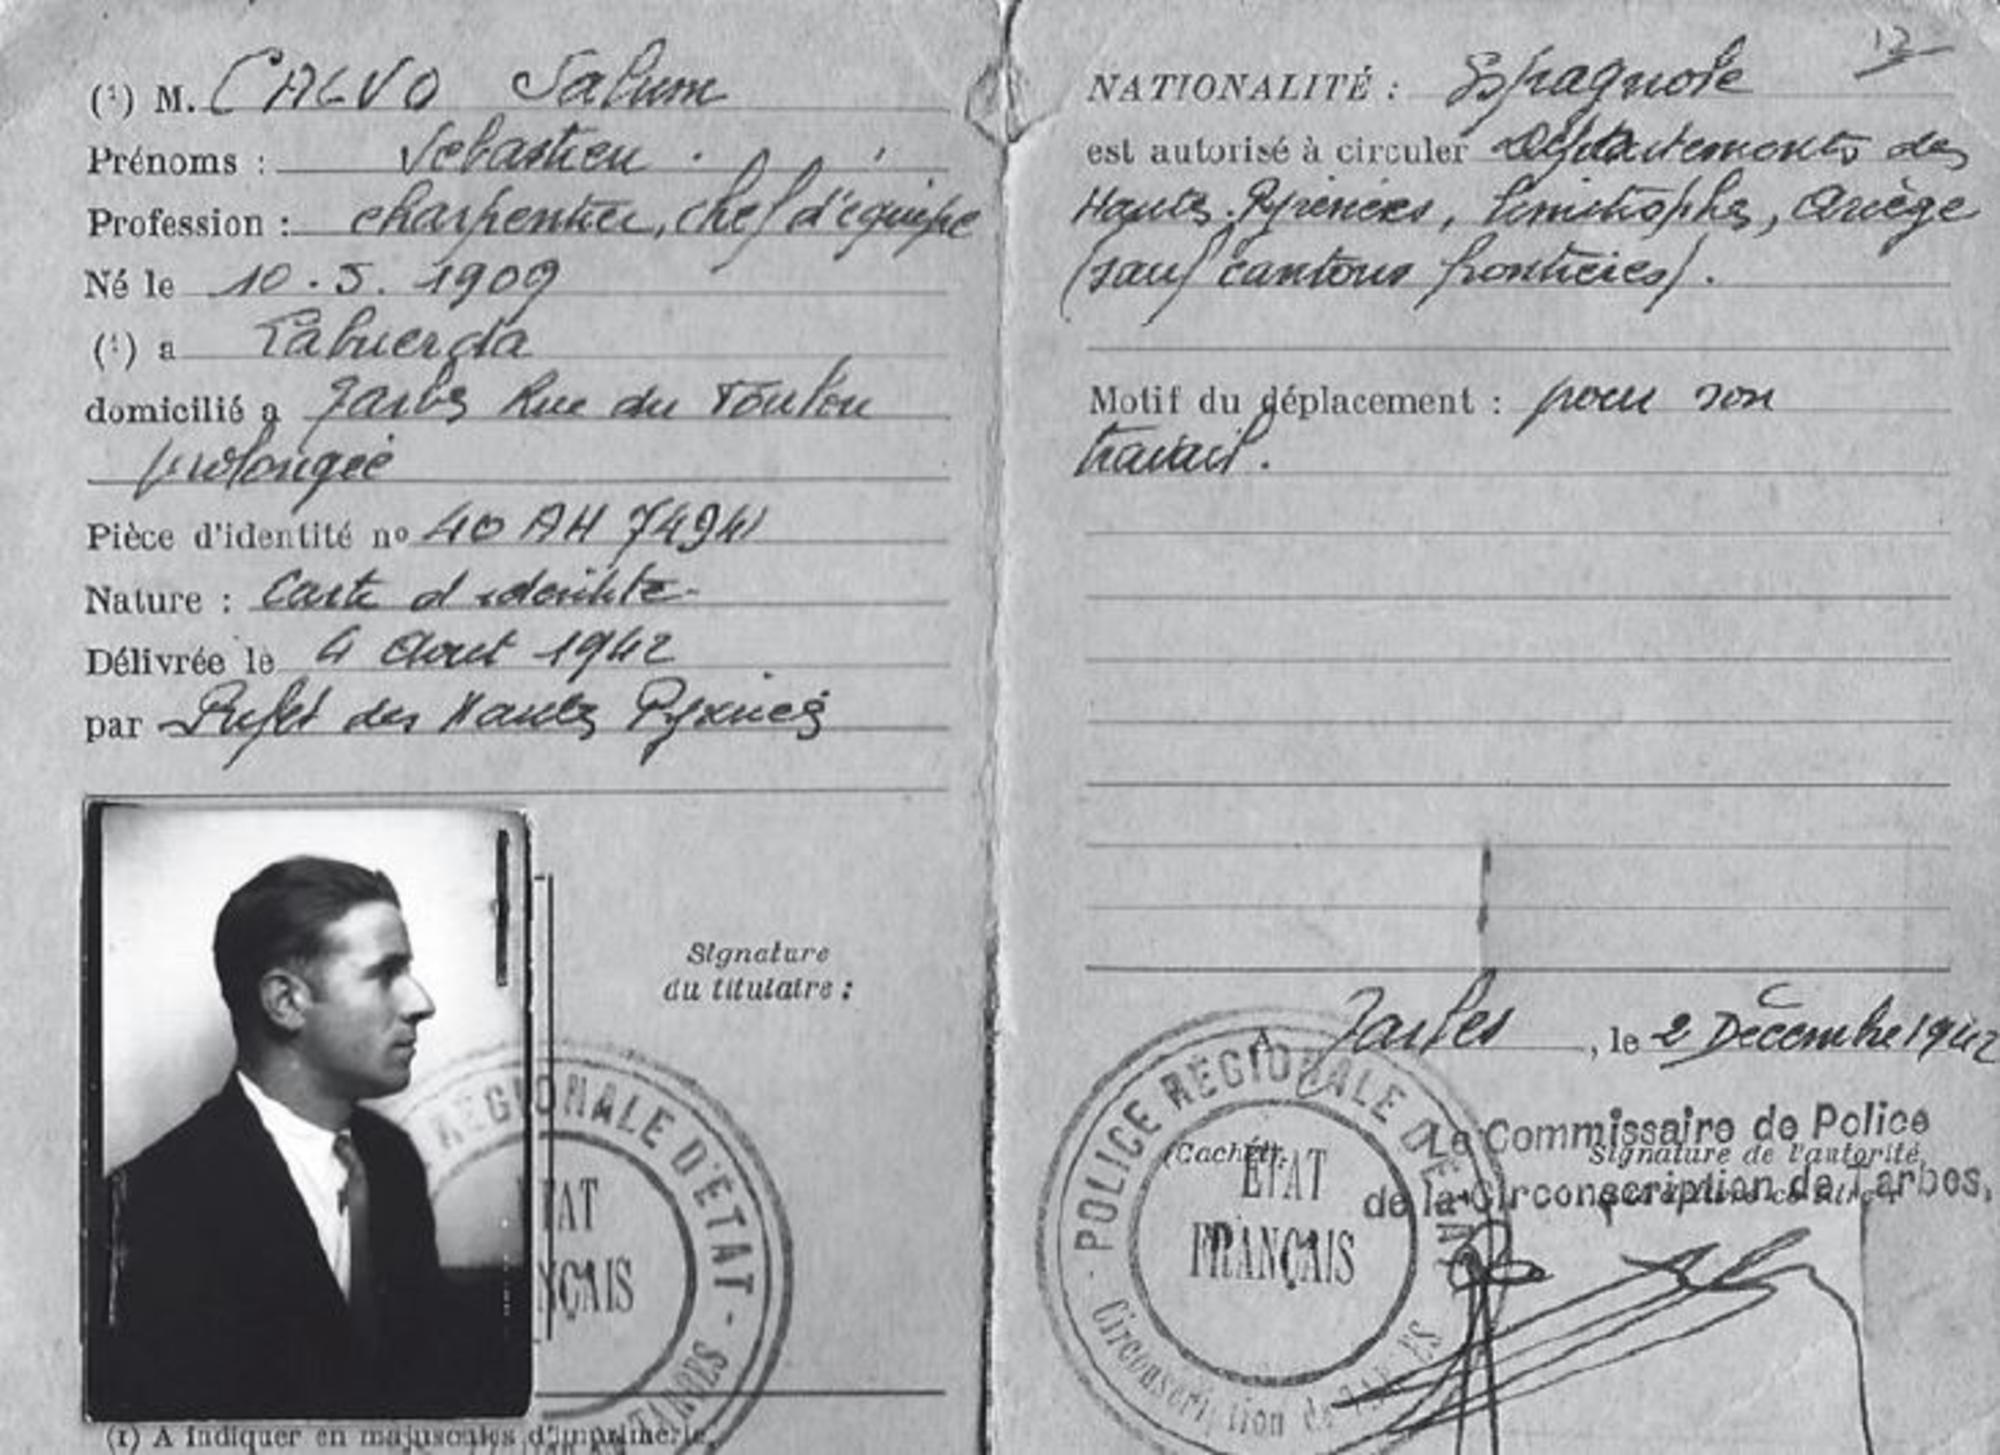 (1) M. CALVO Sahun
Prénoms : Sébastien
Profession : charpentier, chef d'équipe
Né le 10.5.1909
(1) a Labuerda
domicilié a Tarbes Rue du Toulou
prolongée
Pièce d'identité nº 40 AH 74941
Nature : Carte d'identité
Délivrée le 4 Aout 1942
par Préfet des Hautes Pyrénées
Signature
du titulaire :
REGIONALE D'ÉTAT
TAT
NÇAIS
TARBES
(1) A indiquer en majuscules d'imprimerie.
12
NATIONALITÉ : Espagnole
est autorisé à circuler Départements des
Hautes-Pyrénées, limitrophes, Ariège
(sauf cantons frontières).
Motif du déplacement : pour son
travail.
A Tarbes, le 2 Décembre 1942
POLICE REGIONALE D'ÉTAT
ÉTAT
FRANÇAIS
Circonscription de TARBES
(Cachet).
Le Commissaire de Police
Signature de l'autorité
de la Circonscription de Tarbes,